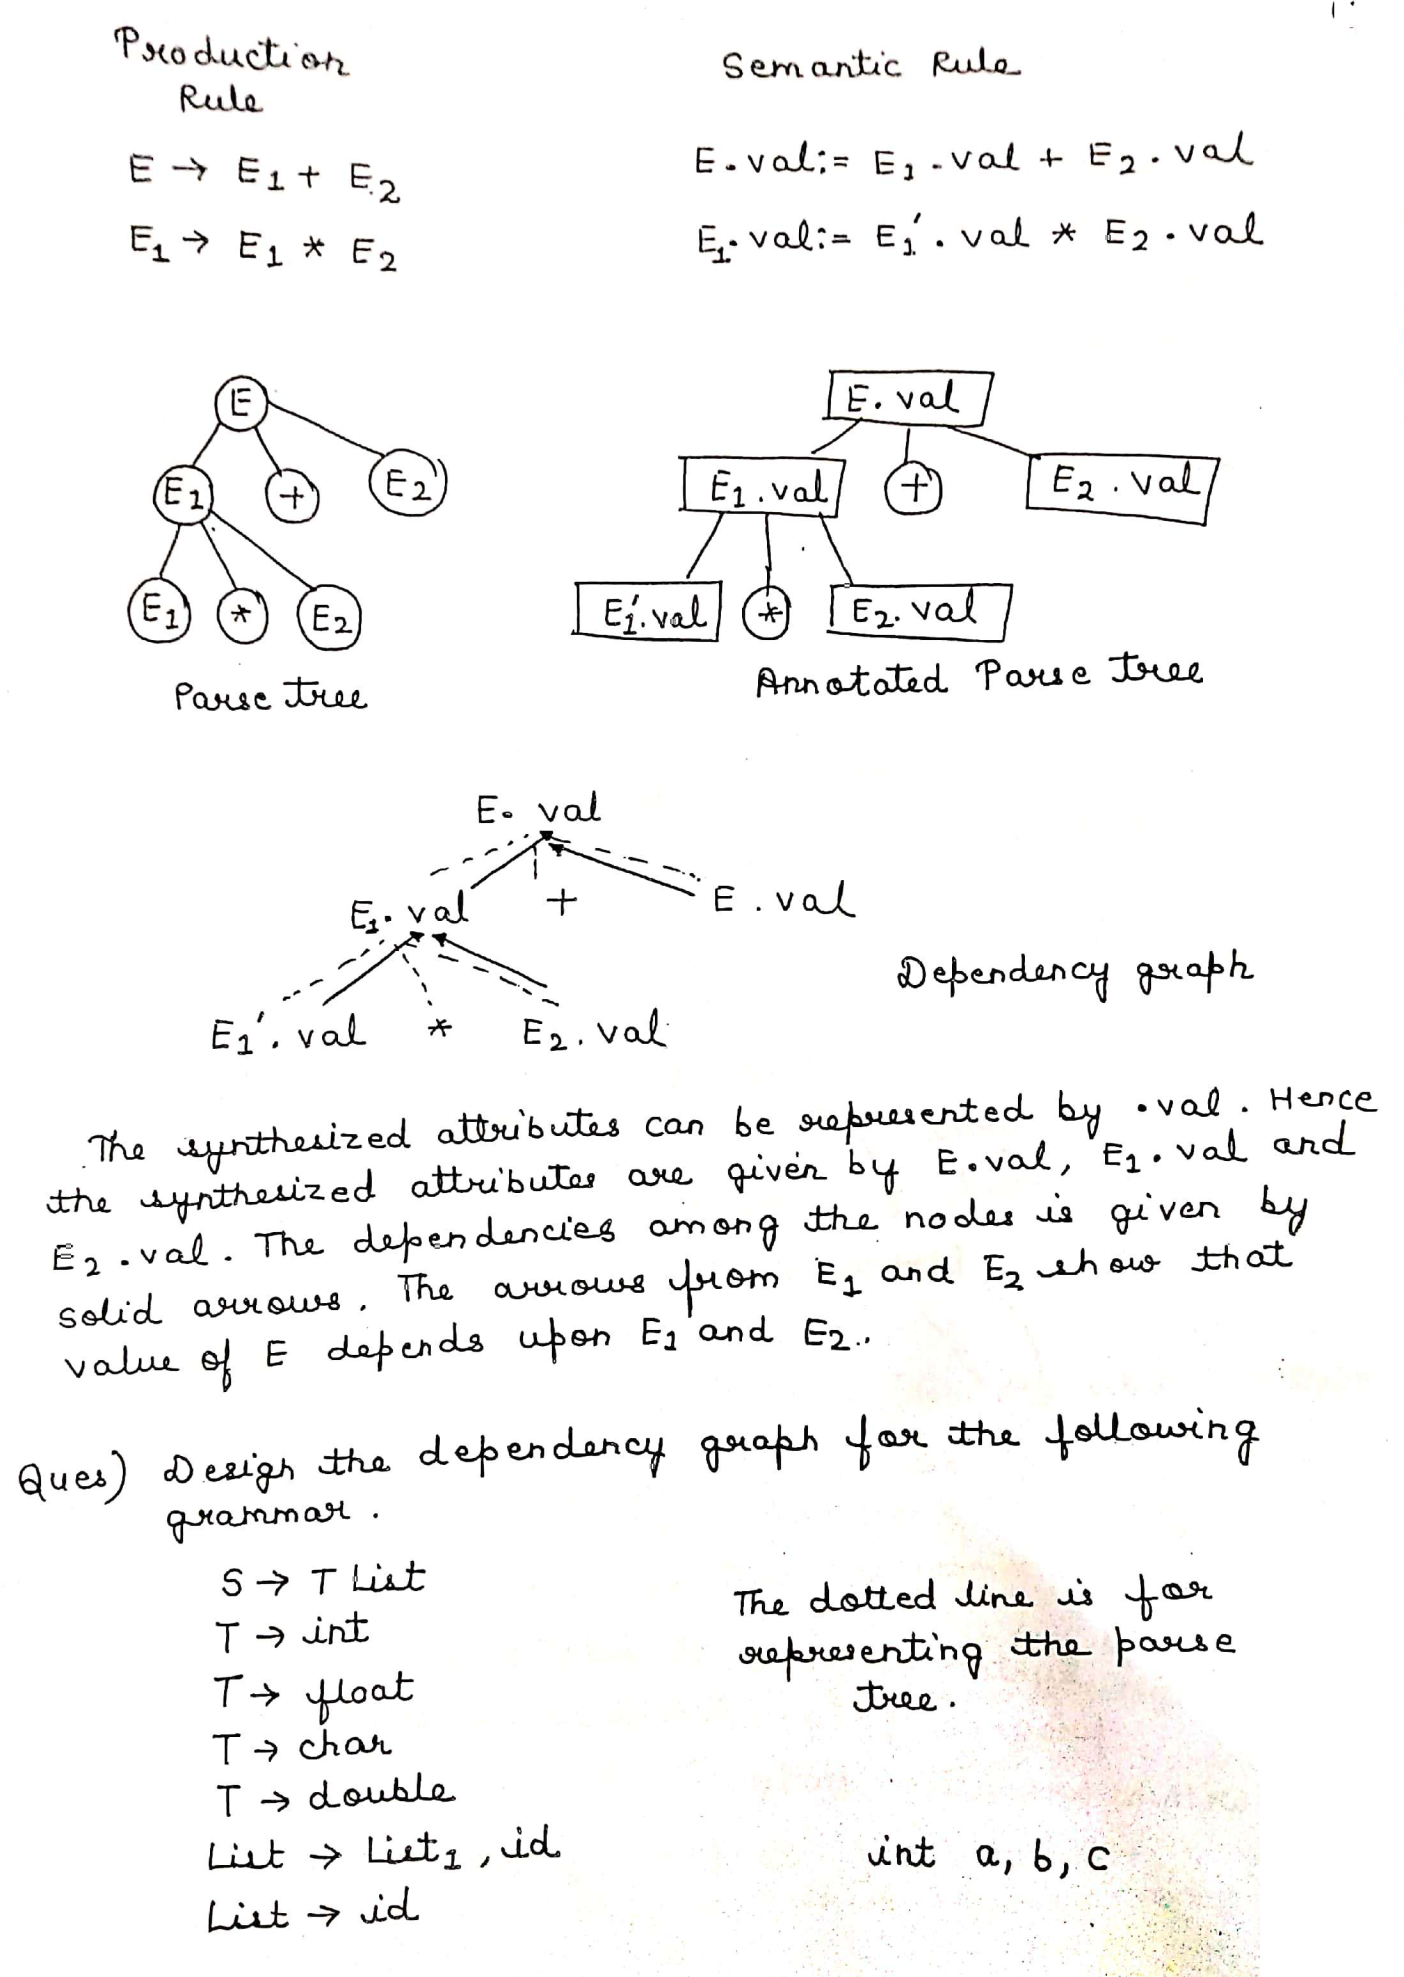 Production
Rule
Semantic Rule
E → E1 + E2
E.val := E1.val + E2.val
E1 → E1 * E2
E1.val := E1'.val * E2.val
E
E1
+
E2
E1
*
E2
Parse tree
E.val
E1.val
+
E2.val
E1'.val
*
E2.val
Annotated Parse tree
E.val
E1.val
+
E.val
E1'.val
*
E2.val
Dependency graph
The synthesized attributes can be represented by .val. Hence
the synthesized attributes are given by E.val, E1.val and
E2.val. The dependencies among the nodes is given by
solid arrows. The arrows from E1 and E2 show that
value of E depends upon E1 and E2.
Ques) Design the dependency graph for the following
grammar.
S → T List
T → int
T → float
T → char
T → double
List → List1, id
List → id
The dotted line is for
representing the parse
tree.
int a, b, c